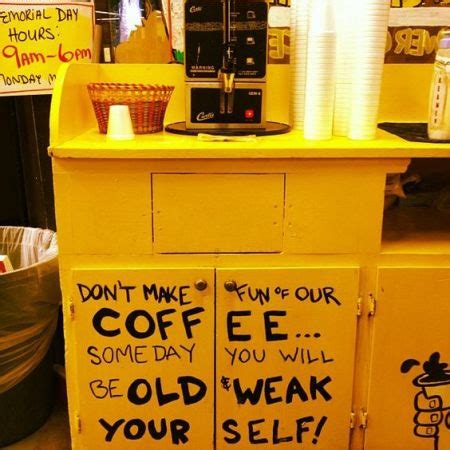 MEMORIAL DAY
HOURS:
9AM-6PM
MONDAY
Curtis
WARNING
Curtis
DON'T MAKE FUN OF OUR
COFFEE...
SOMEDAY YOU WILL
BE OLD & WEAK
YOUR SELF!